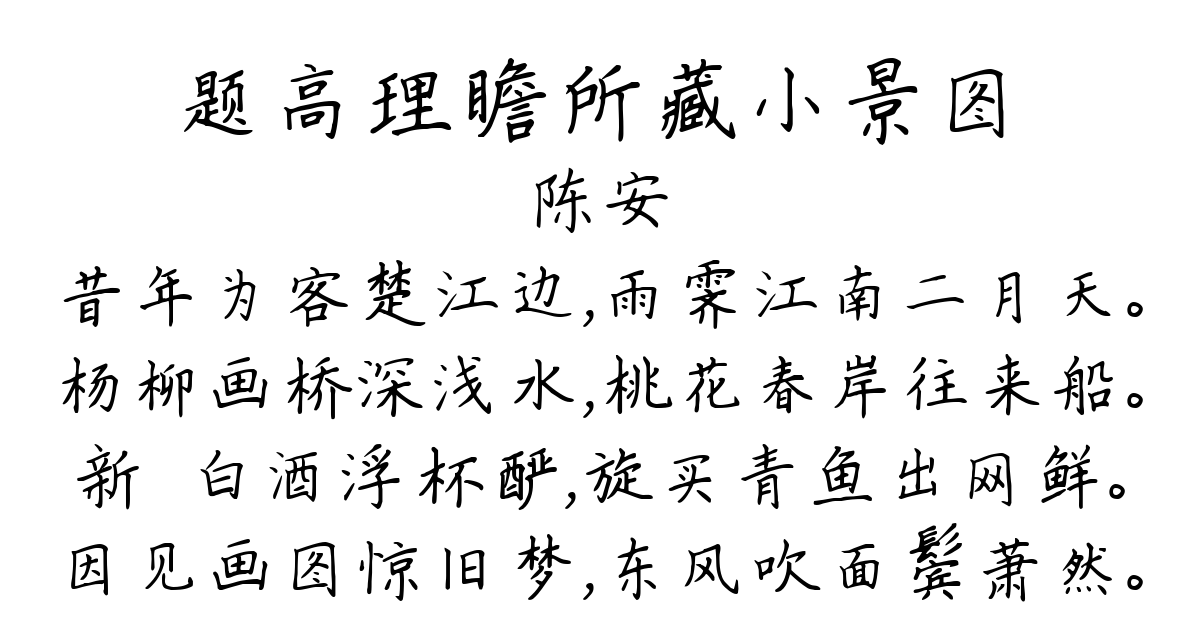 题高理瞻所藏小景图
陈安
昔年为客楚江边,雨霁江南二月天。
杨柳画桥深浅水,桃花春岸往来船。
新 白酒浮杯酽,旋买青鱼出网鲜。
因见画图惊旧梦,东风吹面鬓萧然。